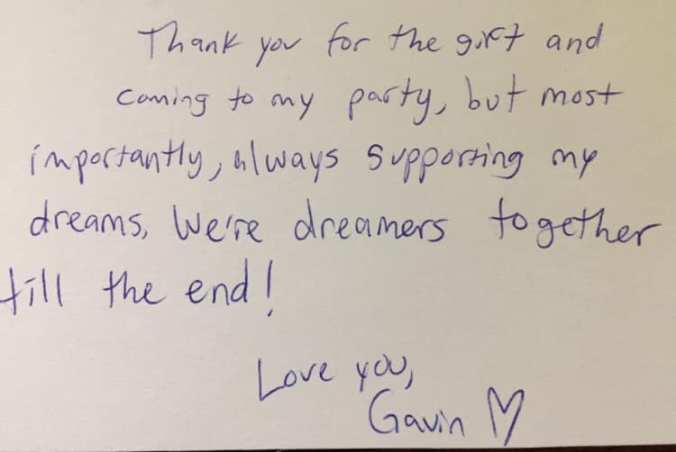 Thank you for the gift and
coming to my party, but most
importantly, always supporting my
dreams. We're dreamers together
till the end!
Love you,
Gavin ♡